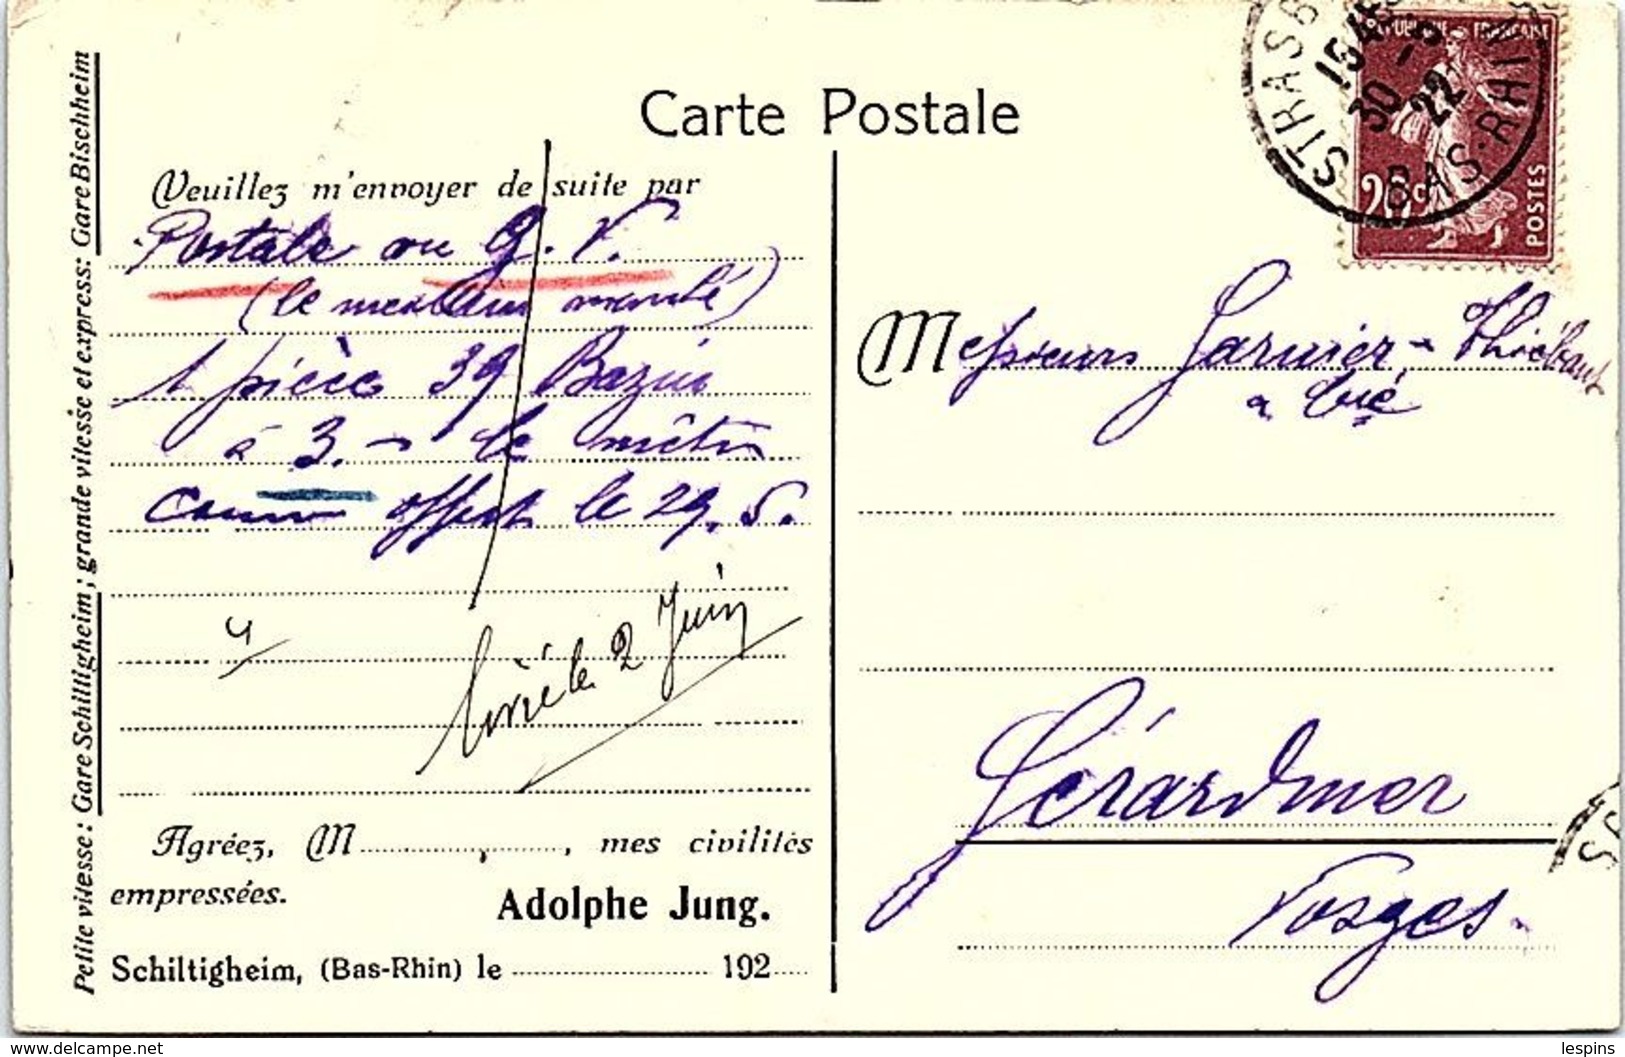 Carte Postale
Petite vitesse: Gare Schiltigheim; grande vitesse et express: Gare Bischheim
Veuillez m'envoyer de suite par
Postale ou g. V.
(le meilleur marché)
1 pièce 39 Bazin
à 3.- le mètre
comme offert le 29. 5.
4
Livré le 2 Juin
Agréez, M , mes civilités
empressées.
Adolphe Jung.
Schiltigheim, (Bas-Rhin) le 192
STRASB
BAS-RHIN
1545
30-5
22
REPUBLIQUE FRANÇAISE
20c
POSTES
Messieurs Garnier-Thiébaut
& Cie
Gérardmer
Vosges.
lespins
www.delcampe.net